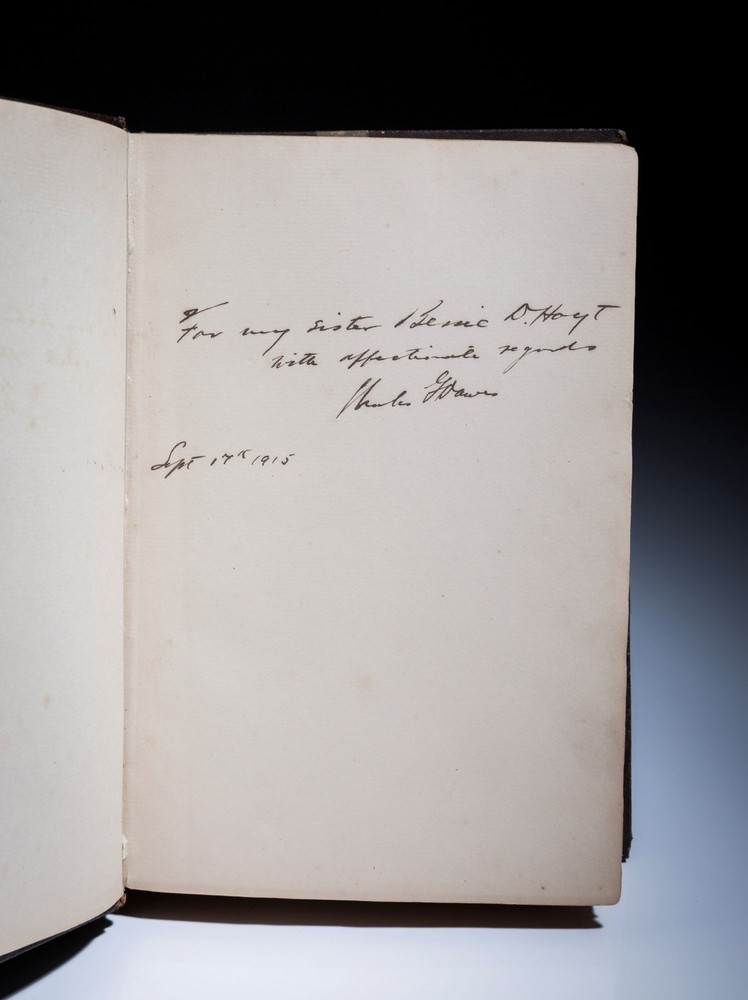 For my sister Bessie D. Hoyt
with affectionate regards
Charles G Dawes
Sept 17th 1915